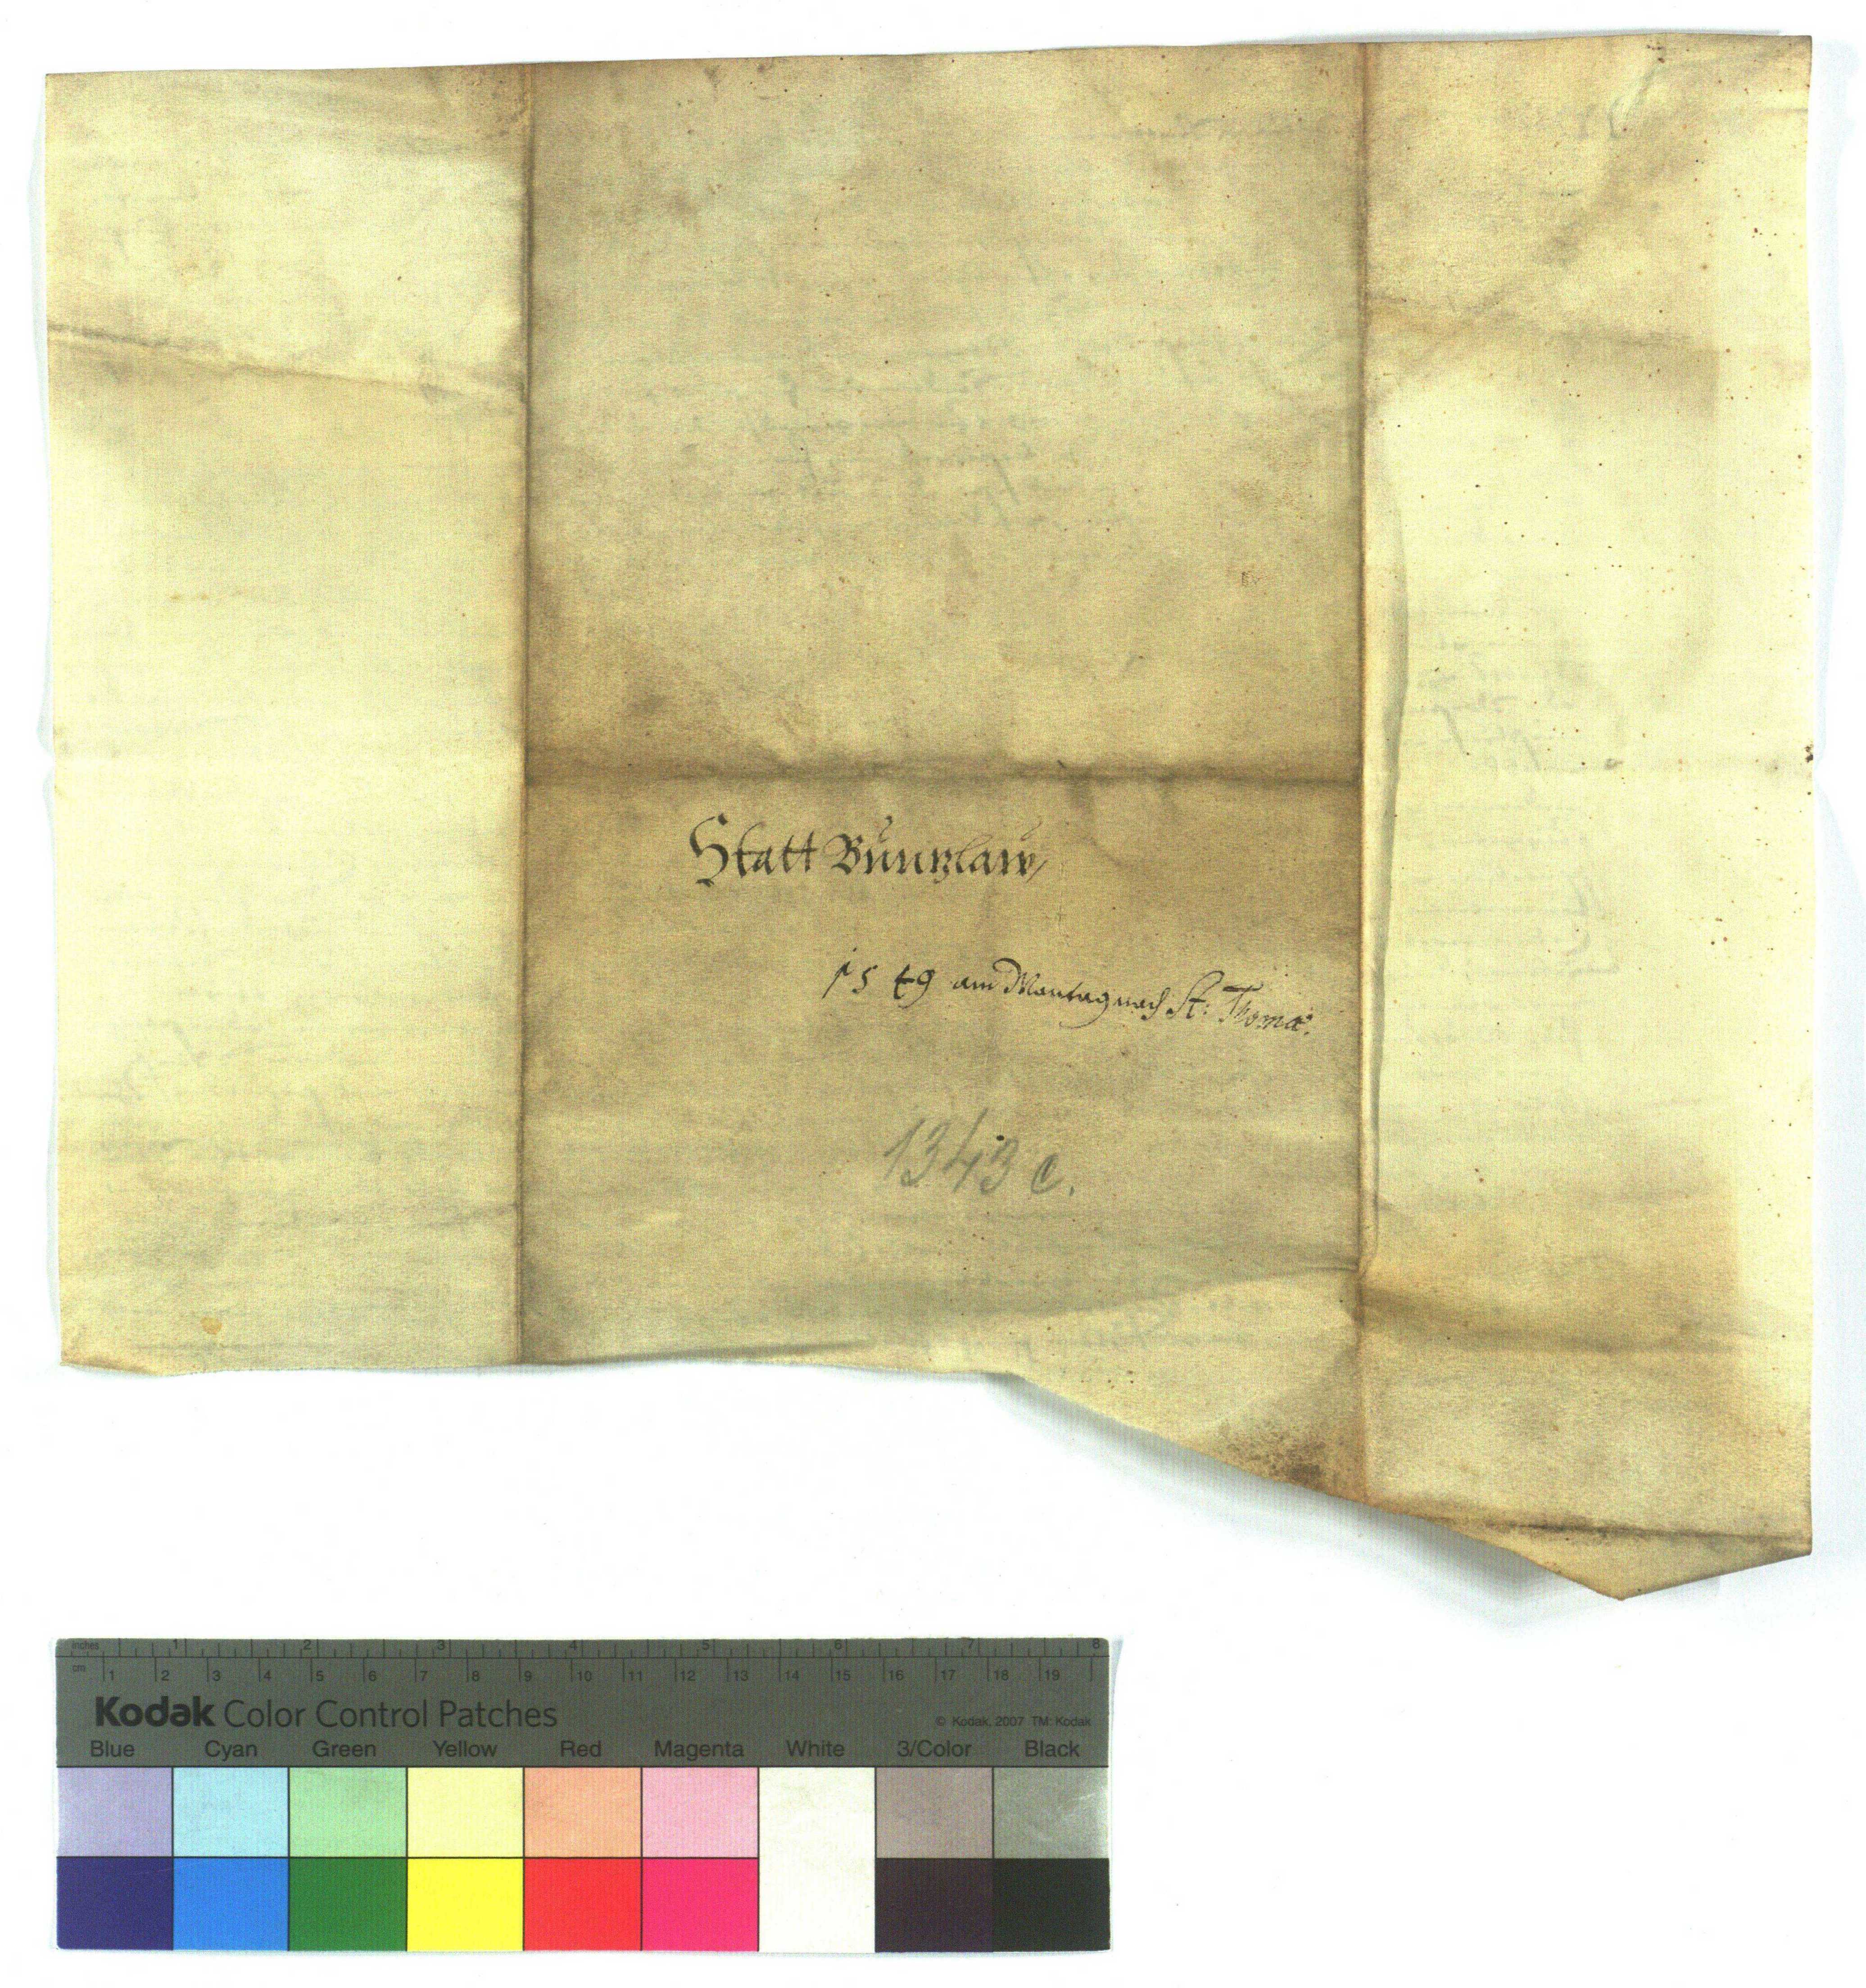 Statt Bůnzlaw,
1549 am Montag nach St: Thomæ.
1343 c.
inches 1 2 3 4 5 6 7 8
cm 1 2 3 4 5 6 7 8 9 10 11 12 13 14 15 16 17 18 19
Kodak Color Control Patches © Kodak, 2007 TM: Kodak
Blue Cyan Green Yellow Red Magenta White 3/Color Black